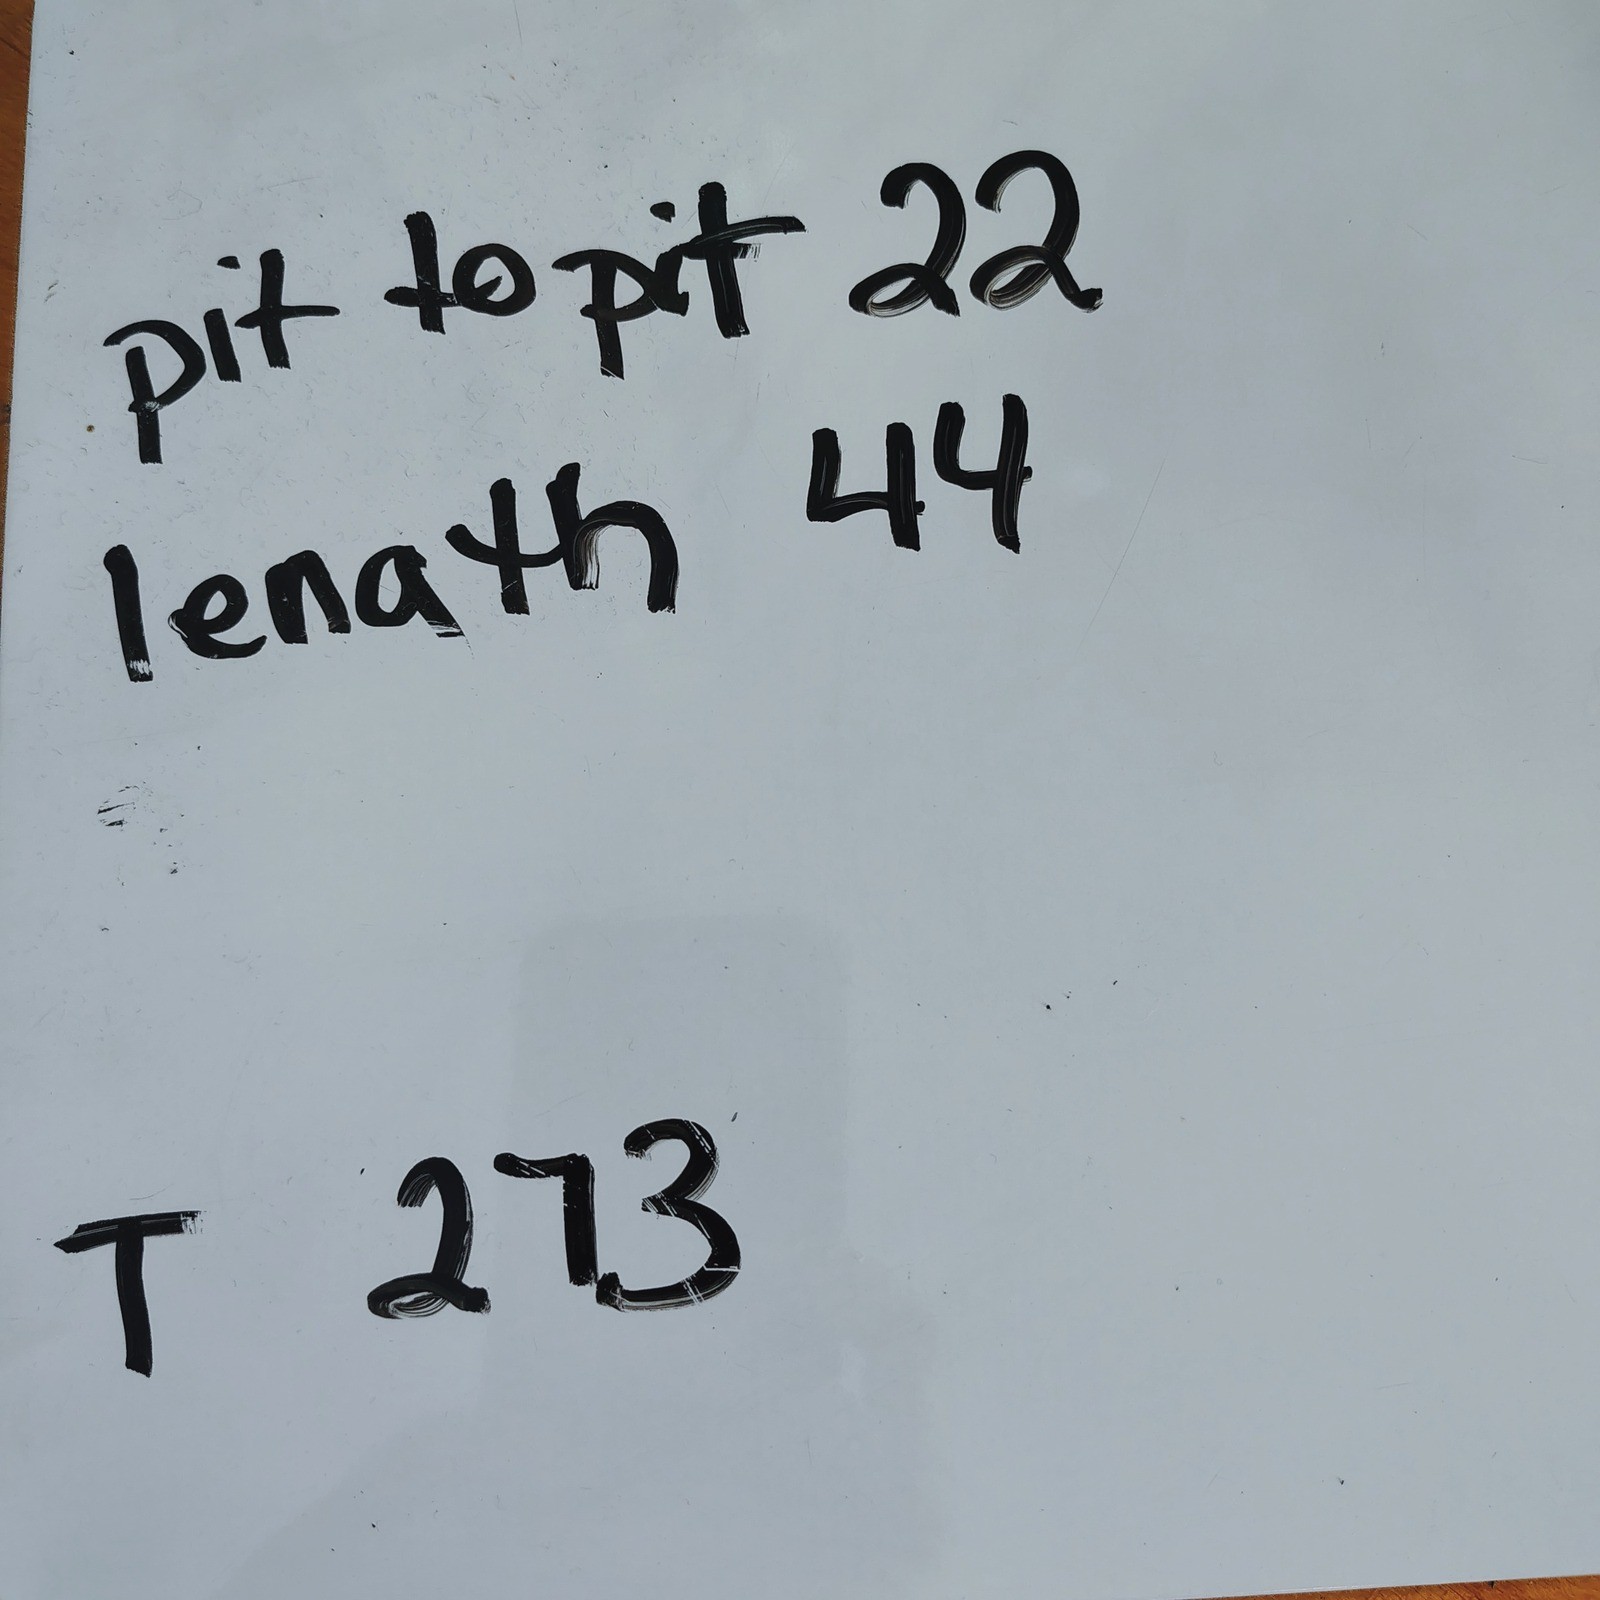 pit to pit 22
length 44
T 273